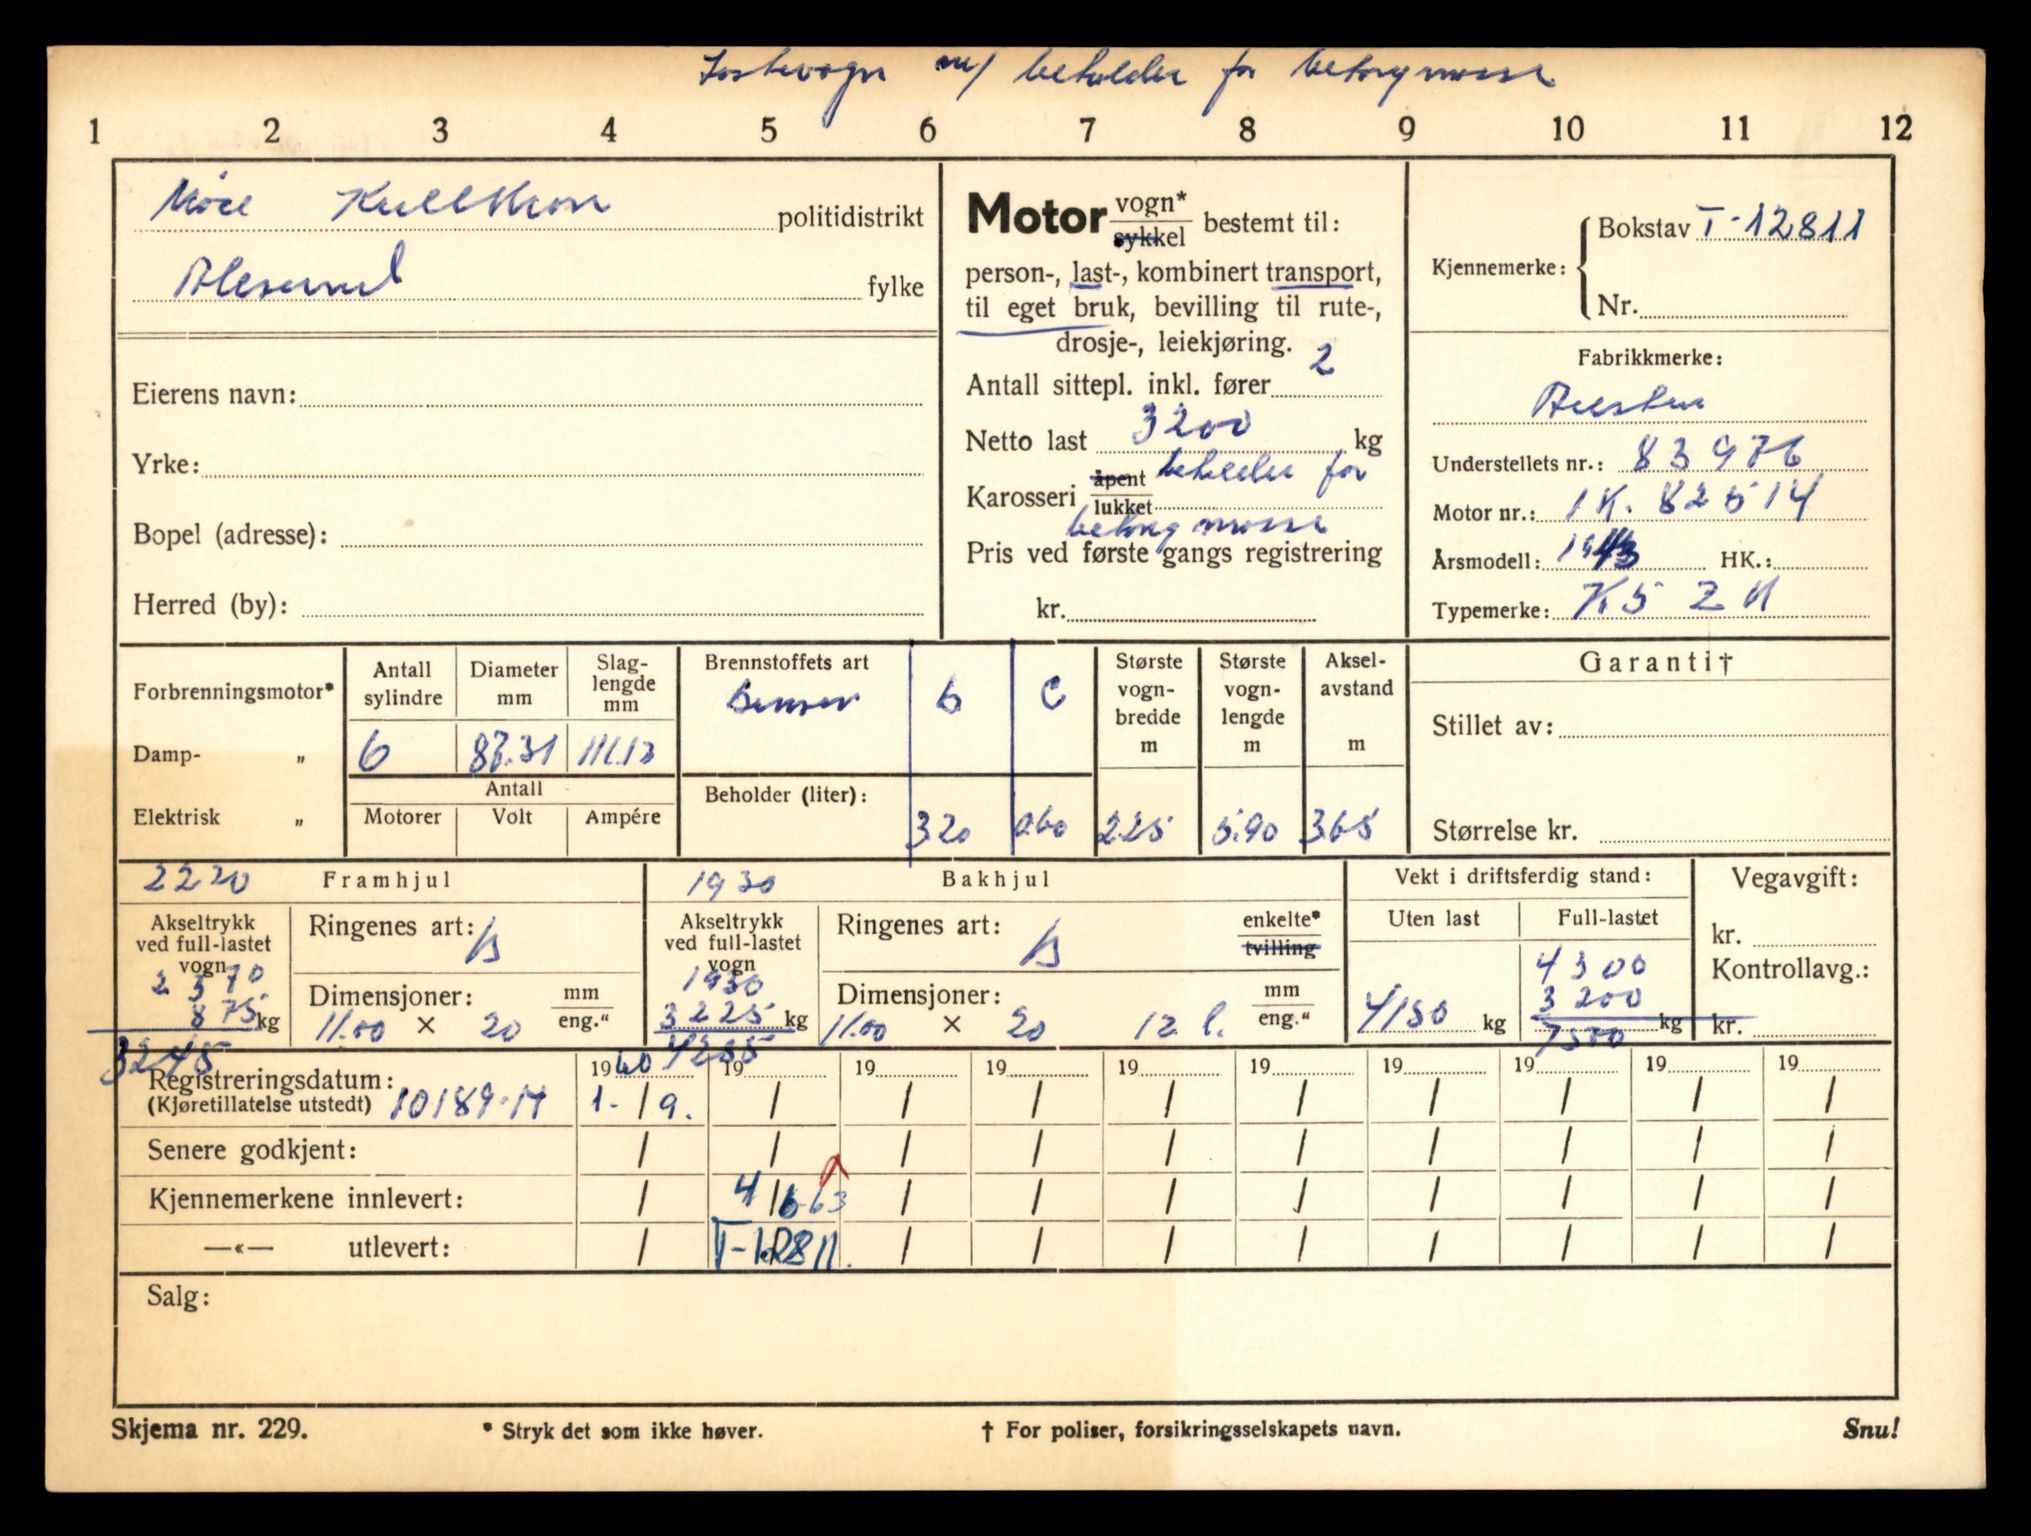 Lastevogn m/ beholder for betongmasse
1 2 3 4 5 6 7 8 9 10 11 12
Møre politidistrikt
Ålesund fylke
Eierens navn:
Yrke:
Bopel (adresse):
Herred (by):
Motor vogn* sykkel bestemt til:
person-, last-, kombinert transport,
til eget bruk, bevilling til rute-,
drosje-, leiekjøring.
Antall sittepl. inkl. fører 2
Netto last 3200 kg
Karosseri åpent lukket beholder for
betong masse
Pris ved første gangs registrering
kr.
Kjennemerke: Bokstav T-12811
Nr.
Fabrikkmerke:
Austin
Understellets nr.: 83976
Motor nr.: 1K. 82514
Årsmodell: 1943 HK.:
Typemerke: K5 ZH
Forbrenningsmotor*
Damp- „
Elektrisk „
Antall sylindre 6
Diameter mm 87.31
Slag-lengde mm 111.13
Antall
Motorer Volt Ampére
Brennstoffets art b C
Bensin
Beholder (liter): 320 060
Største vogn-bredde m 225
Største vogn-lengde m 5.90
Aksel-avstand m 365
Garanti†
Stillet av:
Størrelse kr.
2220 Framhjul
Akseltrykk ved full-lastet vogn
2370
875 kg
3245
Ringenes art:
Dimensjoner: mm eng."
11.00 × 20
1930 Bakhjul
Akseltrykk ved full-lastet vogn
1930
3225 kg
4255
Ringenes art: enkelte* tvilling
Dimensjoner: mm eng."
11.00 × 20 12 l.
Vekt i driftsferdig stand:
Uten last Full-lastet
4150 kg
4300
3200 kg
7500
Vegavgift:
kr.
Kontrollavg.:
kr.
19 60 19 19 19 19 19 19 19 19 19
Registreringsdatum:
(Kjøretillatelse utstedt) 10189-14 1. / 9. / / / / / / / / /
Senere godkjent: / / / / / / / / / /
Kjennemerkene innlevert: / 4 / 6-63 / / / / / / / /
—«— utlevert: / T-12811. / / / / / / / /
Salg:
Skjema nr. 229. * Stryk det som ikke høver. † For poliser, forsikringsselskapets navn. Snu!